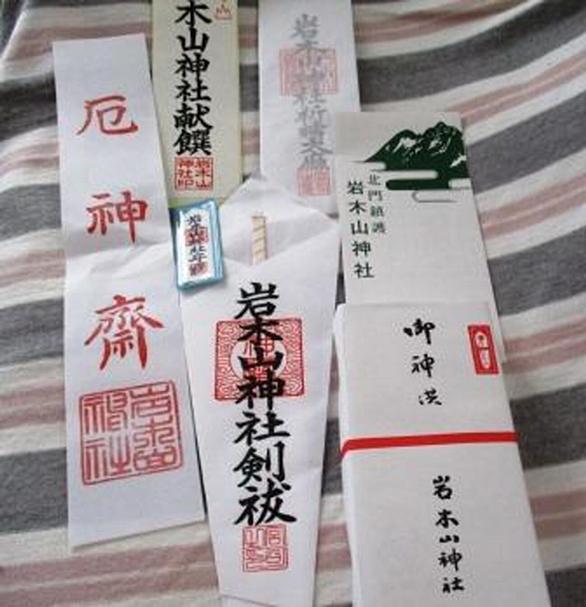 厄神齋
岩木山神社
木山神社献饌
岩木山神社印
岩木山神社祈祷大麻
北門鎮護
岩木山神社
岩木山神社剣祓
御神洪
岩木山神社